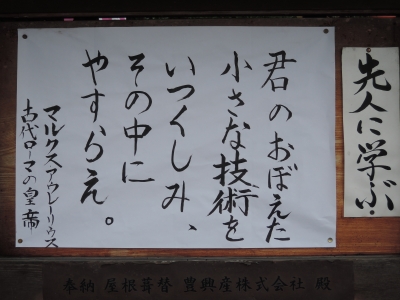 先人に学ぶ
君のおぼえた
小さな技術を
いつくしみ、
その中に
やすらえ。
マルクスアウレーリウス
古代ローマの皇帝
奉納 屋根葺替 豊興産株式会社 殿